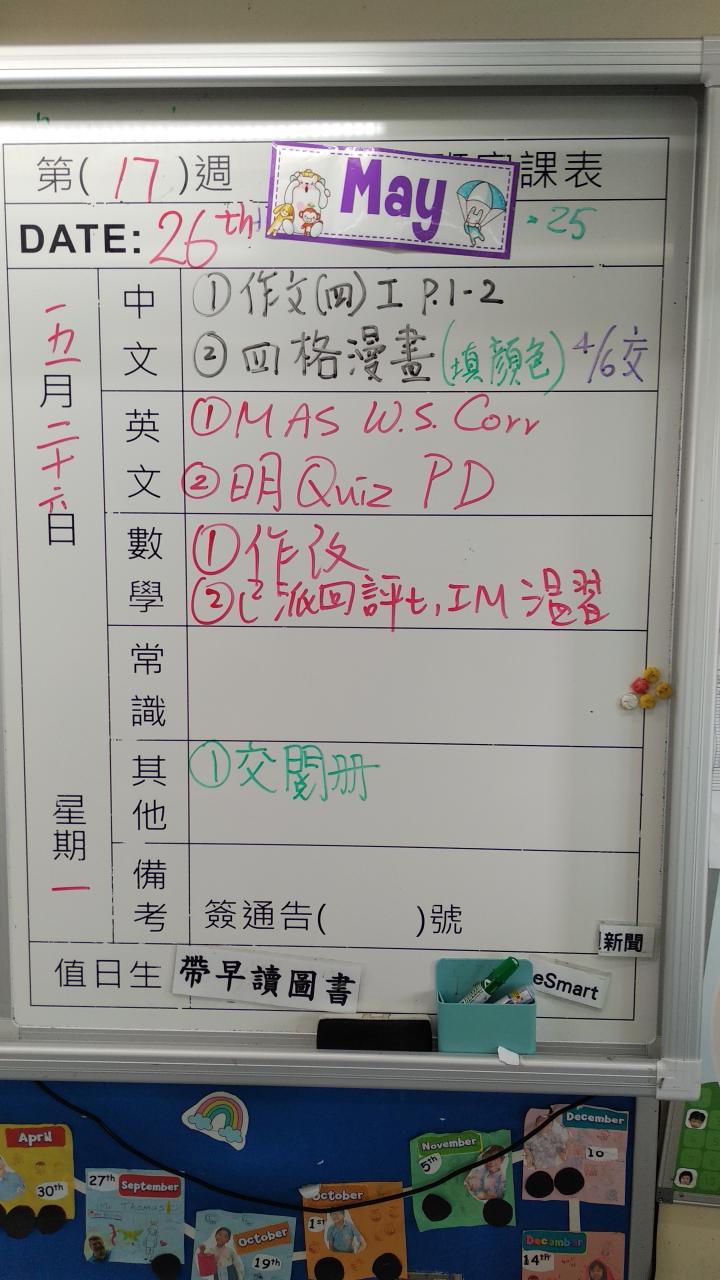 第( 17 )週
課表
May
DATE: 26th
25
五月二十六日
星期一
中文
① 作文(四) 工 P.1-2
② 四格漫畫(填顏色) 4/6交
英文
① MAS W.S. Corr
② 明 Quiz PD
數學
① 作改
② 已派回評七, IM 溫習
常識
其他
① 交閱冊
備考
簽通告( )號
新聞
值日生
帶早讀圖書
eSmart
April
30th
27th
September
October
19th
October
1st
November
5th
December
10
December
14th